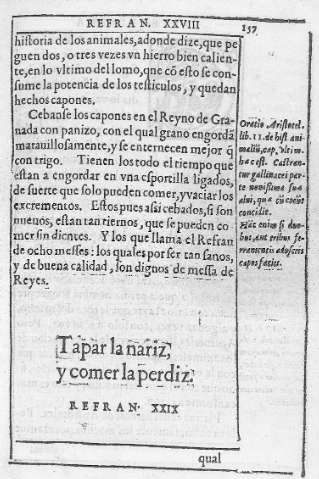 REFRAN. XXVIII
157
historia de los animales, adonde dize, que pe
guen dos, o tres vezes vn hierro bien calien-
te, en lo vltimo del lomo, que cō esto se con-
sume la potencia de los testiculos, y quedan
hechos capones.
Cebanse los capones en el Reyno de Gra-
nada con panizo, con el qual grano engordā
marauillosamente, y se enternecen mejor q̄
con trigo. Tienen los todo el tiempo que
estan a engordar en vna esportilla ligados,
de suerte que solo pueden comer, y vaciar los
excrementos. Estos pues assi cebados, si son
nueuos, estan tan tiernos, que se pueden co-
mer sin dientes. Y los que llama el Refran
de ocho messes: los quales por ser tan sanos,
y de buena calidad, son dignos de messa de
Reyes.
Oratio Aristotel.
lib. 11. de hist. ani-
maliū, cap. vltim.
hac est. Castran-
tur gallinacei par-
te nouissima sua
alui, qua cū coeūt
concilit.
Hāc enim si duo-
bus, aut tribus fe-
rramentis adusseris
capos facies.
Tapar la nariz,
y comer la perdiz.
REFRAN. XXIX
qual